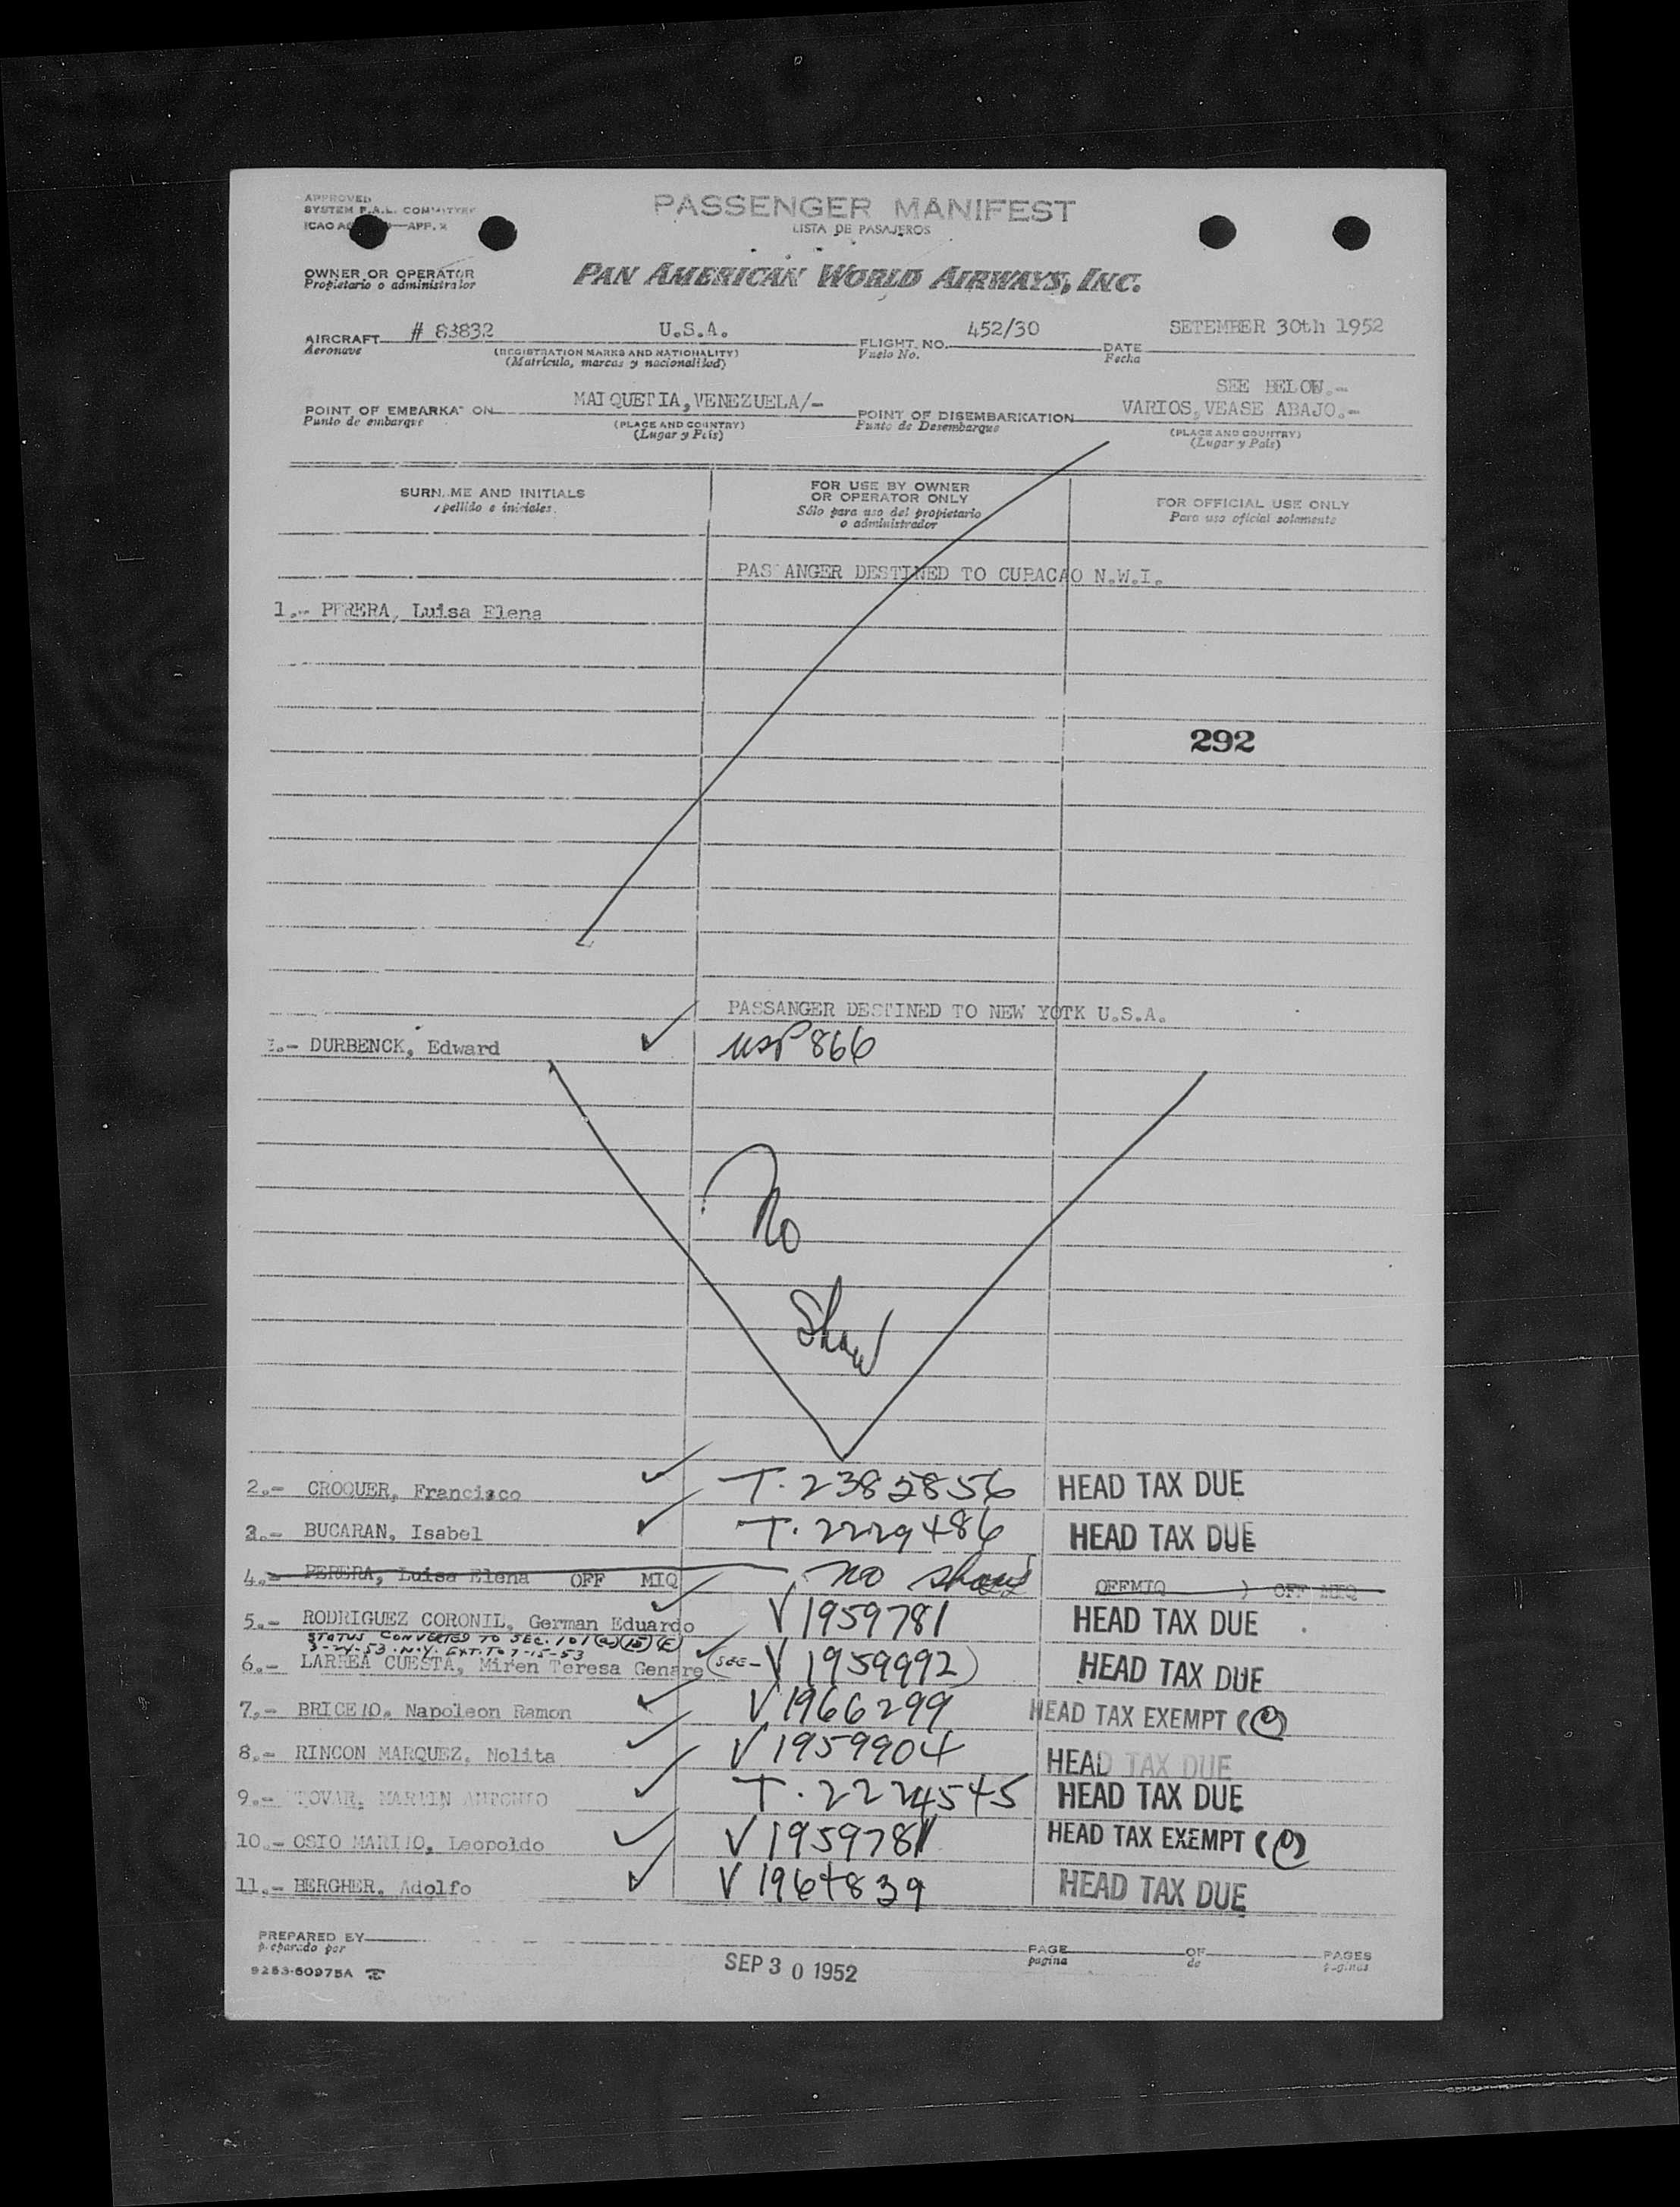 APPROVED
SYSTEM F.A.L. COMMITTEE
ICAO APP. 2
PASSENGER MANIFEST
LISTA DE PASAJEROS
OWNER OR OPERATOR
Propietario o administrador
PAN AMERICAN WORLD AIRWAYS, INC.
AIRCRAFT # 83832 U.S.A. FLIGHT. NO. 452/30 DATE SETEMBER 30th 1952
Aeronave (REGISTRATION MARKS AND NATIONALITY) Vuelo No. Fecha
(Matricula, marcas y nacionalidad)
SEE BELOW.-
POINT OF EMBARKAT ON MAIQUETIA,VENEZUELA/- POINT OF DISEMBARKATION VARIOS,VEASE ABAJO.-
Punto de embarque (PLACE AND COUNTRY) Punto de Desembarque (PLACE AND COUNTRY)
(Lugar y País) (Lugar y País)
SURN ME AND INITIALS FOR USE BY OWNER OR OPERATOR ONLY FOR OFFICIAL USE ONLY
pellido e iniciales Sólo para uso del propietario o administrador Para uso oficial solamente
PAS ANGER DESTINED TO CURACAO N.W.I.
1.- PERERA, Luisa Elena
292
PASSANGER DESTINED TO NEW YOTK U.S.A.
1.- DURBENCK, Edward usp 866
No
Show
2.- CROQUER, Francisco T. 2382856 HEAD TAX DUE
3.- BUCARAN, Isabel T. 2229486 HEAD TAX DUE
4.- PERERA, Luisa Elena OFF MIQ no show OFFMIQ ) OFF MIQ
5.- RODRIGUEZ CORONIL, German Eduardo V 1959781 HEAD TAX DUE
STATUS CONVERTED TO SEC. 101 (a)(15)(E)
3-24-53. N.Y. EXT. TO 7-15-53
6.- LARREA CUESTA, Miren Teresa Genare (SEE - V 1959992) HEAD TAX DUE
7.- BRICENO. Napoleon Ramon V 1966299 HEAD TAX EXEMPT
8.- RINCON MARQUEZ, Nolita V 1959904 HEAD TAX DUE
9.- TOVAR, MARTIN ANTONIO T. 2224545 HEAD TAX DUE
10.- OSIO MARINO, Leopoldo V 1959781 HEAD TAX EXEMPT
11.- BERGHER, Adolfo V 1964839 HEAD TAX DUE
PREPARED BY PAGE OF PAGES
preparado por pagina de paginas
9253-50975A SEP 30 1952